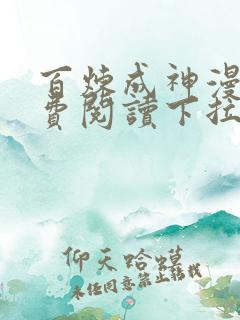 百炼成神漫
费閱讀下拉
仰天蛤蟆
未经同意禁止转载